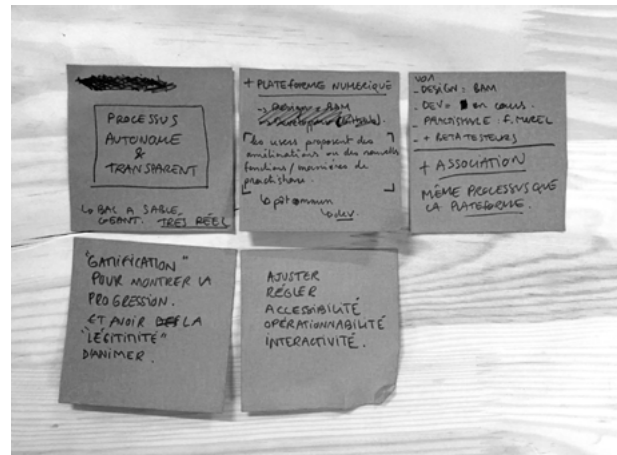 PROCESSUS
AUTONOME
&
TRANSPARENT
↳ BAC A SABLE
GEANT. TRÈS RÉEL
+ PLATEFORME NUMERIQUE
→ Design : BAM
→ Développeur
les users proposent des
améliorations ou des nouvelles
fonctions / manières de
practishare.
↳ pot commun
↳ dev.
VON
- DESIGN : BAM
- DEV : en cours.
- PRACTISHARE : F. MUREL
- + BETATESTEURS
+ ASSOCIATION
MÊME PROCESSUS QUE
LA PLATEFORME.
"GAMIFICATION"
POUR MONTRER LA
PROGRESSION.
ET AVOIR LA
"LÉGITIMITÉ"
D'ANIMER.
AJUSTER
RÉGLER
ACCESSIBILITÉ
OPÉRATIONNABILITÉ
INTERACTIVITÉ.